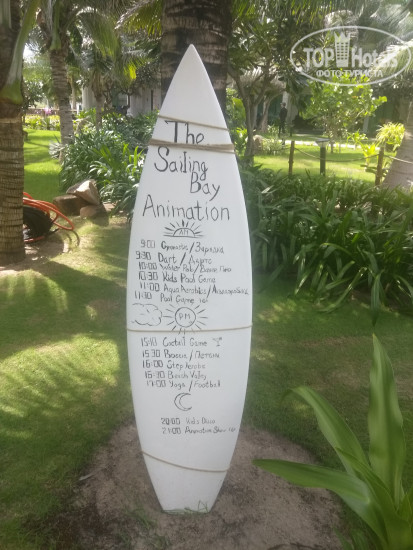 TOPHotels
ФОТО ТУРИСТА
The
Sailing
Bay
Animation
AM
9:00 Gymnastic / Зарядка
9:30 Dart / Дартс
10:00 Water Polo /
10:30 Kids Pool Game
11:00 Aqua Aerobics /
11:30 Pool Game
PM
15:10 Coctail Game
15:30 Boccia / Петанк
16:00 Step Aerobic
16:30 Beach Volley
17:00 Yoga / Football
20:00 Kids Disco
21:00 Animation Show